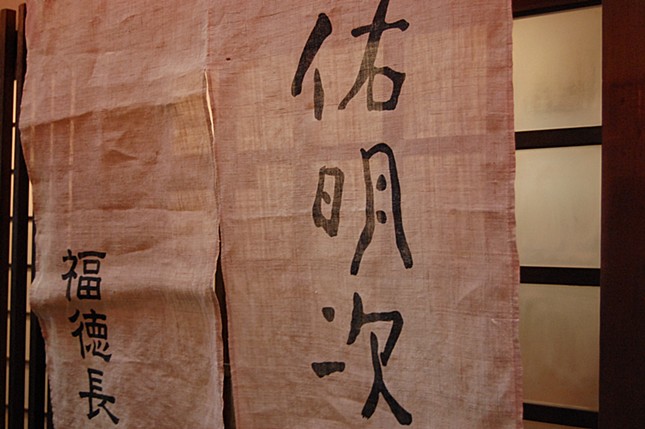 佑明次
福徳長